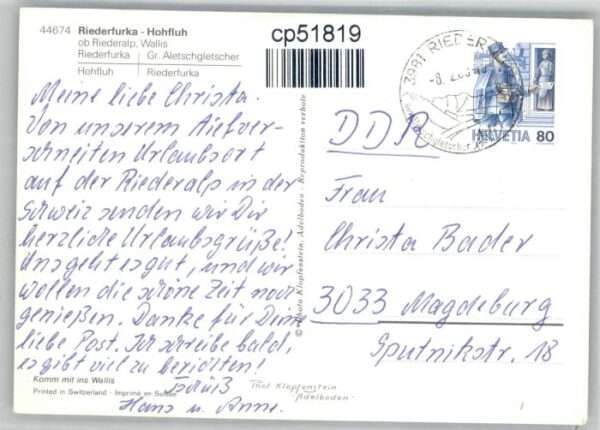 44674 Riederfurka - Hohfluh
ob Riederalp, Wallis
Riederfurka Gr. Aletschgletscher
Hohfluh Riederfurka
cp51819
3991 RIEDER
-8. 2
HELVETIA 80
Meine liebe Christa.
Von unserem tiefver-
schneiten Urlaubsort
auf der Riederalp in der
Schweiz senden wir Dir
herzliche Urlaubsgrüße!
Uns geht es gut, und wir
wollen die schöne Zeit noch
genießen. Danke für Deine
liebe Post. Ich schreibe bald,
es gibt viel zu berichten!
Hans u. Anne.
DDR
Frau
Christa Bader
3033 Magdeburg
Sputnikstr. 18
© Photo Klopfenstein, Adelboden - Reproduktion verbote
Komm mit ins Wallis
Printed in Switzerland - Imprimé en Suisse
Phot Klopfenstein
Adelboden